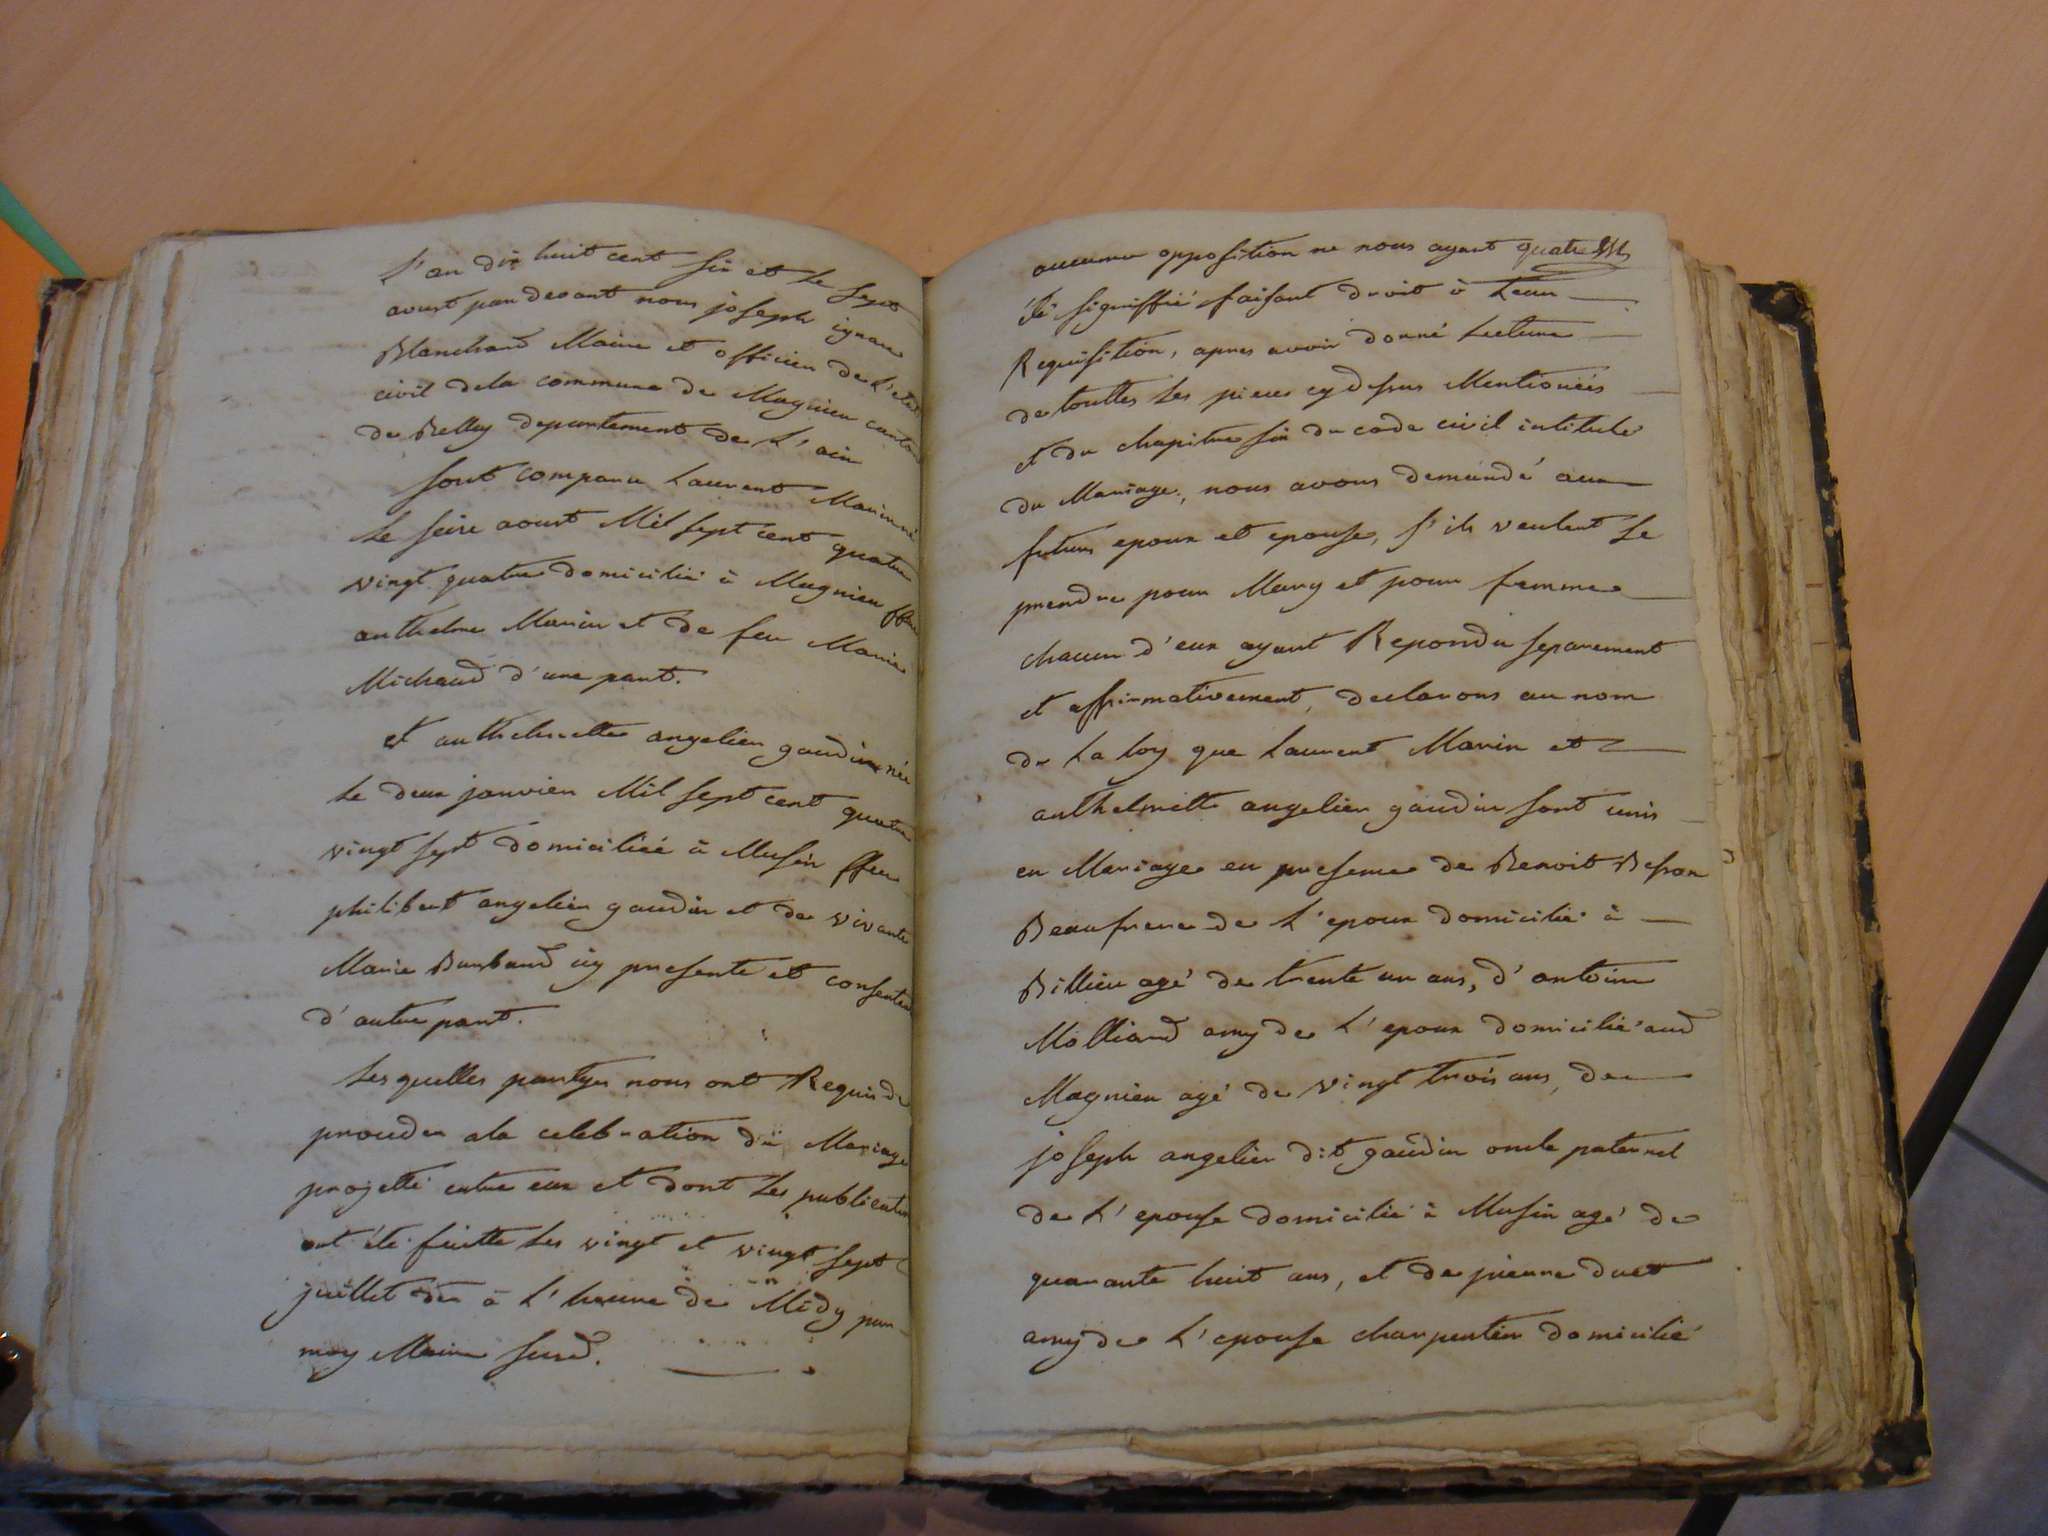 L'an dix huit cent six et le sept
aoust pardevant nous joseph ignace
Blanchard Maire et officier de L'etat
civil dela commune de Magnieu canton
de Belley departement de L'ain
sont comparu Laurent Marin né
Le seize aoust Mil sept cent quatre
vingt quatre domicilié à Magnieu ffeu
anthelme Marin et de feu Marie
Michaud d'une part.
et anthelmette angelier gaudin née
Le deux janvier Mil sept cent quatre
vingt sept domiciliéé à Musin ffeu
philibert angelier gaudin et de vivante
Marie Burbaud icy presente et consentante
d'autre part.
Les quelles partyes nous ont Requis de
proceder ala celebration du Mariage
projetté entre eux et dont Les publications
ont été faitte Les vingt et vingt sept
juillet der à L'heure de Midy par
moy Maire susd.
aucune opposition ne nous ayant quatre
été signiffié faisant droit à Leur
Requisition, apres avoir donné Lecture
de touttes Les pieces cydessus Mentionéés
et du chapitre six du code civil intitulé
du Mariage, nous avons demandé aux
futurs epoux et epouse, s'ils veulent se
prendre pour Mary et pour femme
chacun d'eux ayant Repondu separement
et affirmativement, declarons au nom
de La loy que Laurent Marin et
anthelmette angelier gaudin sont unis
en Mariage en presence de Benoit Besson
Beaufrere de L'epoux domicilié à
Billieu agé de trente un ans, d'antoine
Molliard amy de L'epoux domicilié aud
Magnieu agé de vingt trois ans, de
joseph angelier dit gaudin oncle paternel
de L'epouse domicilié à Musin agé de
quarante huit ans, et de pierre duet
amy de L'epouse charpentier domicilié